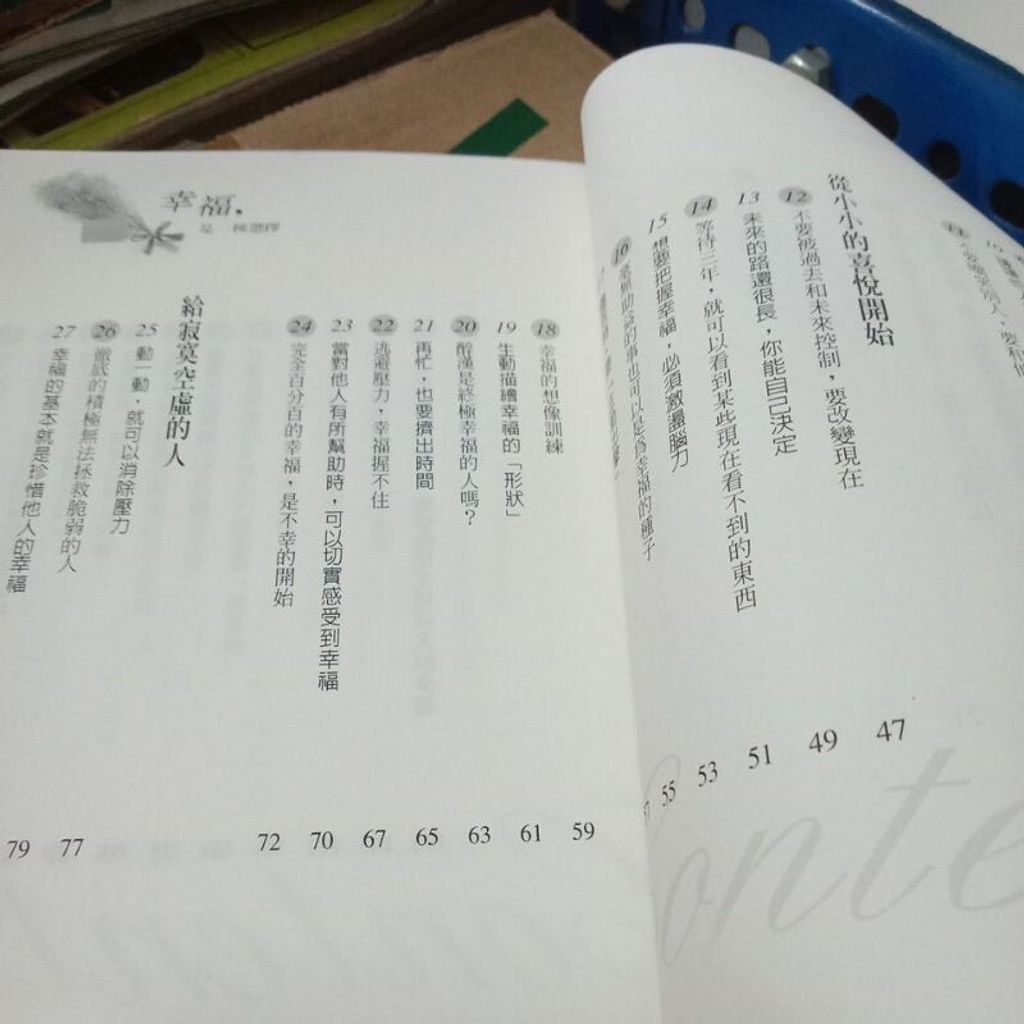 從小小的喜悅開始
12 不要被過去和未來控制，要改變現在
13 未來的路還很長，你能自己決定
14 等待三年，就可以看到某些現在看不到的東西
15 想要把握幸福，必須激盪腦力
16
47
49
51
53
55
onte
幸福，
是一種選擇
18 幸福的想像訓練
19 生動描繪幸福的「形狀」
20 醉漢是終極幸福的人嗎？
21 再忙，也要擠出時間
22 逃避壓力，幸福握不住
23 當對他人有所幫助時，可以切實感受到幸福
24 完全百分百的幸福，是不幸的開始
給寂寞空虛的人
25 動一動，就可以消除壓力
26 徹底的積極無法拯救脆弱的人
27 幸福的基本就是珍惜他人的幸福
59
61
63
65
67
70
72
77
79